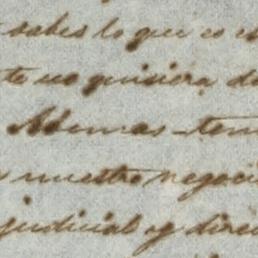 sabes lo que es es
te no quisiera de
Ademas ten
nuestro negoci
judicial y direc